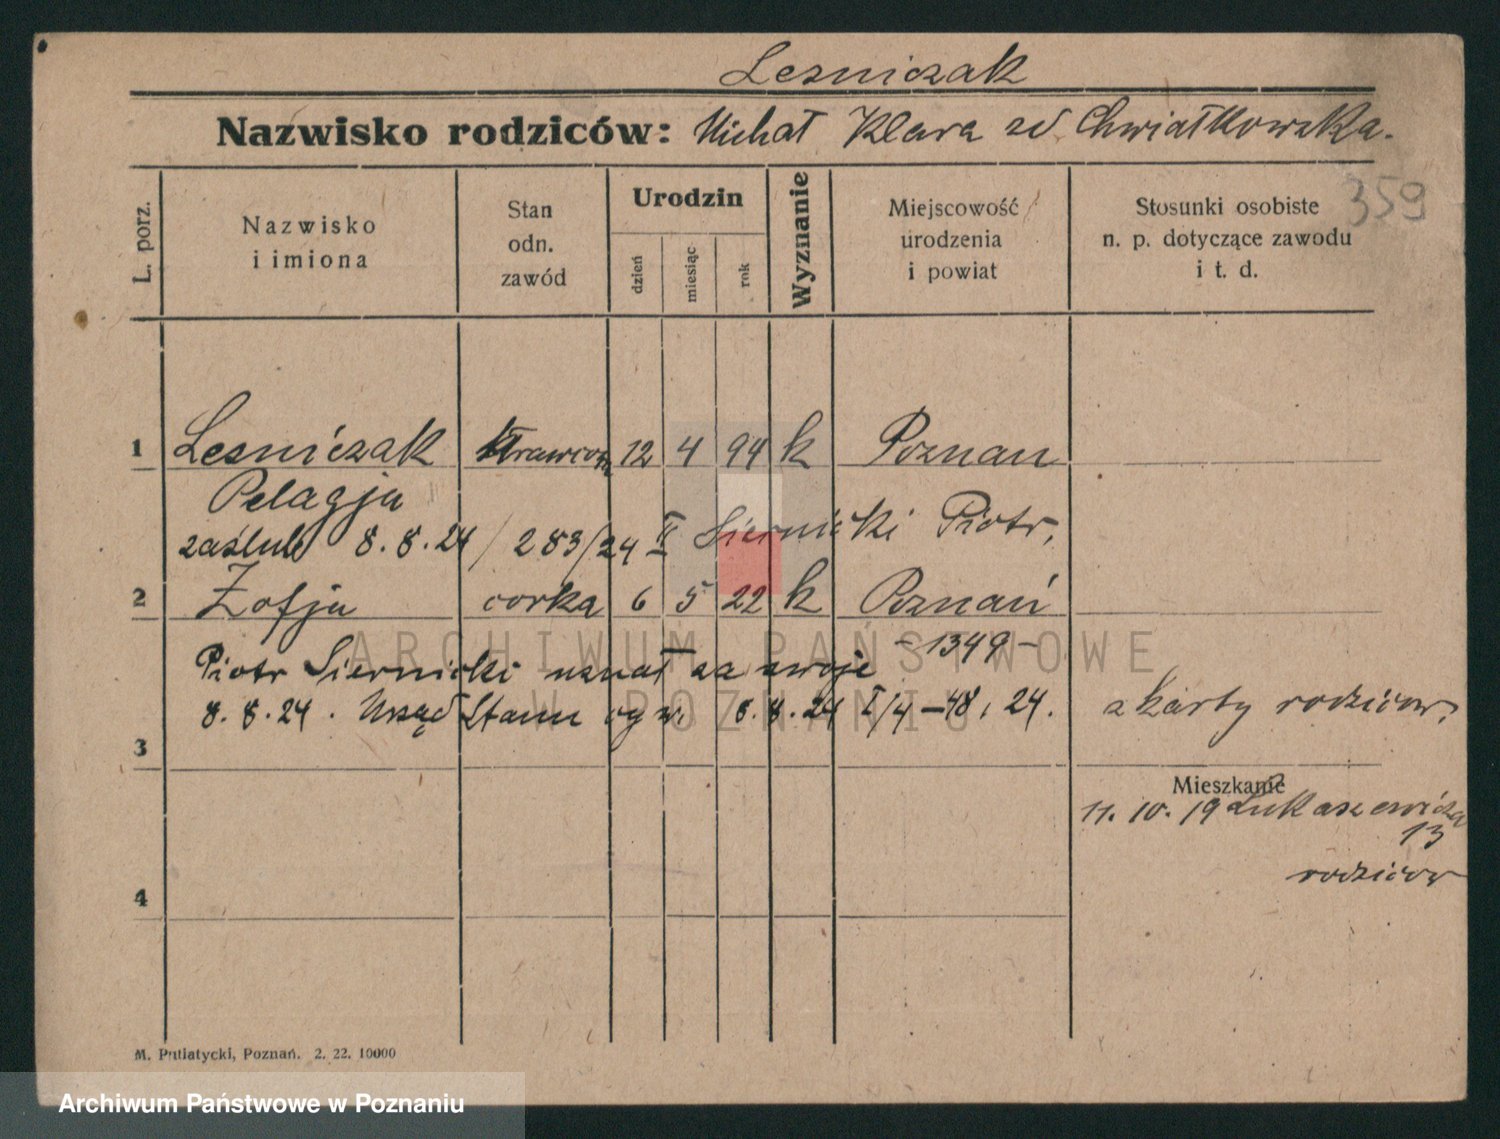 Lesniczak
Nazwisko rodziców: Michał Klara zd Chwiałkowska.
359
L. porz.
Nazwisko
i imiona
Stan
odn.
zawód
Urodzin
dzień
miesiąc
rok
Wyznanie
Miejscowość
urodzenia
i powiat
Stosunki osobiste
n. p. dotyczące zawodu
i t. d.
1 Lesniczak krawcow 12 4 94 k Poznan
Pelagja
zaślub 8.8.24 / 283/24 II Siernicki Piotr,
2 Zofja corka 6 5 22 k Poznań
-1349-
Piotr Siernicki uznał za swoje
8.8.24. Urząd Stanu cyw. 8.8.24 I/4-48.24.
z karty rodziców.
3
Mieszkanie
11.10.19 Łukaszewicza
13
rodziców
4
M. Putiatycki, Poznań. 2. 22. 10000
ARCHIWUM PAŃSTWOWE
W POZNANIU
Archiwum Państwowe w Poznaniu